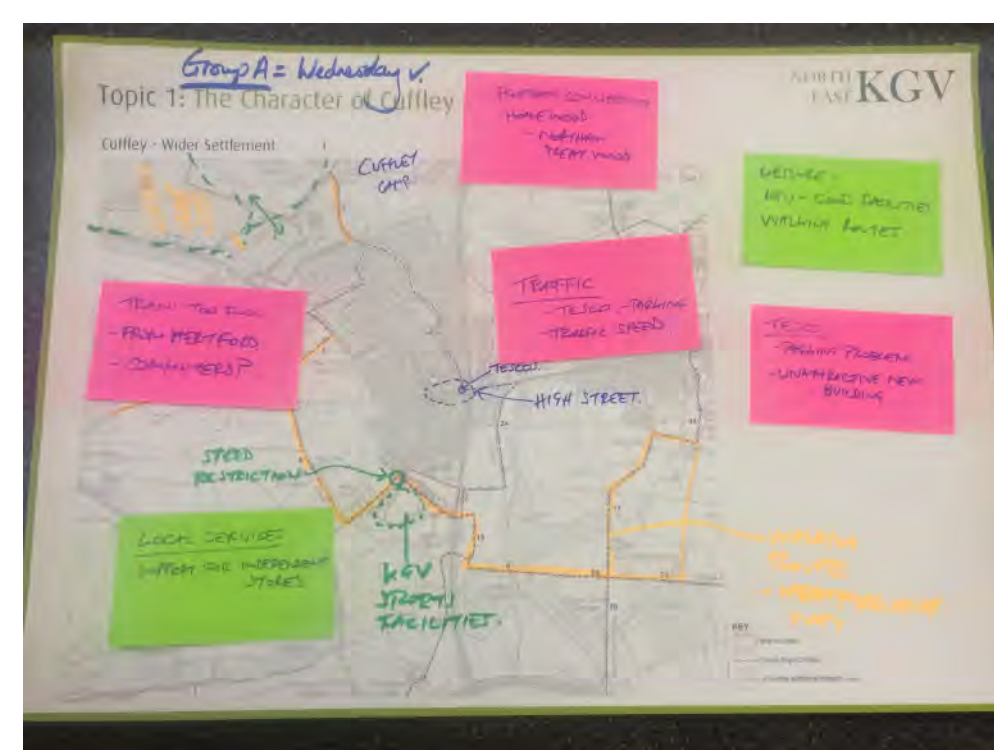 Group A = Wednesday
Topic 1: The Character of Cuffley
NORTH EAST KGV
Cuffley - Wider Settlement
CUFFLEY
CAMP.
HOMEWOOD
- NORTHAW
GREAT WOOD
LEISURE -
KGV - GOOD FACILITIES
WALKING ROUTES
TRAIN
- FROM HERTFORD
- COMMUTERS?
TRAFFIC
- TESCO - PARKING
- TRAFFIC SPEED
TESCO
- PARKING PROBLEM
- UNATTRACTIVE NEW
BUILDING
TESCOS.
HIGH STREET.
SPEED
RESTRICTION
LOCAL SERVICES
SUPPORT FOR INDEPENDENT
STORES
KGV
SPORTS
FACILITIES.
WALKING
ROUTE
KEY